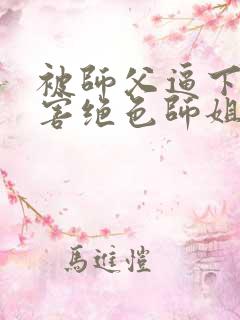 被師父逼下
害绝色師姐
馬進愷